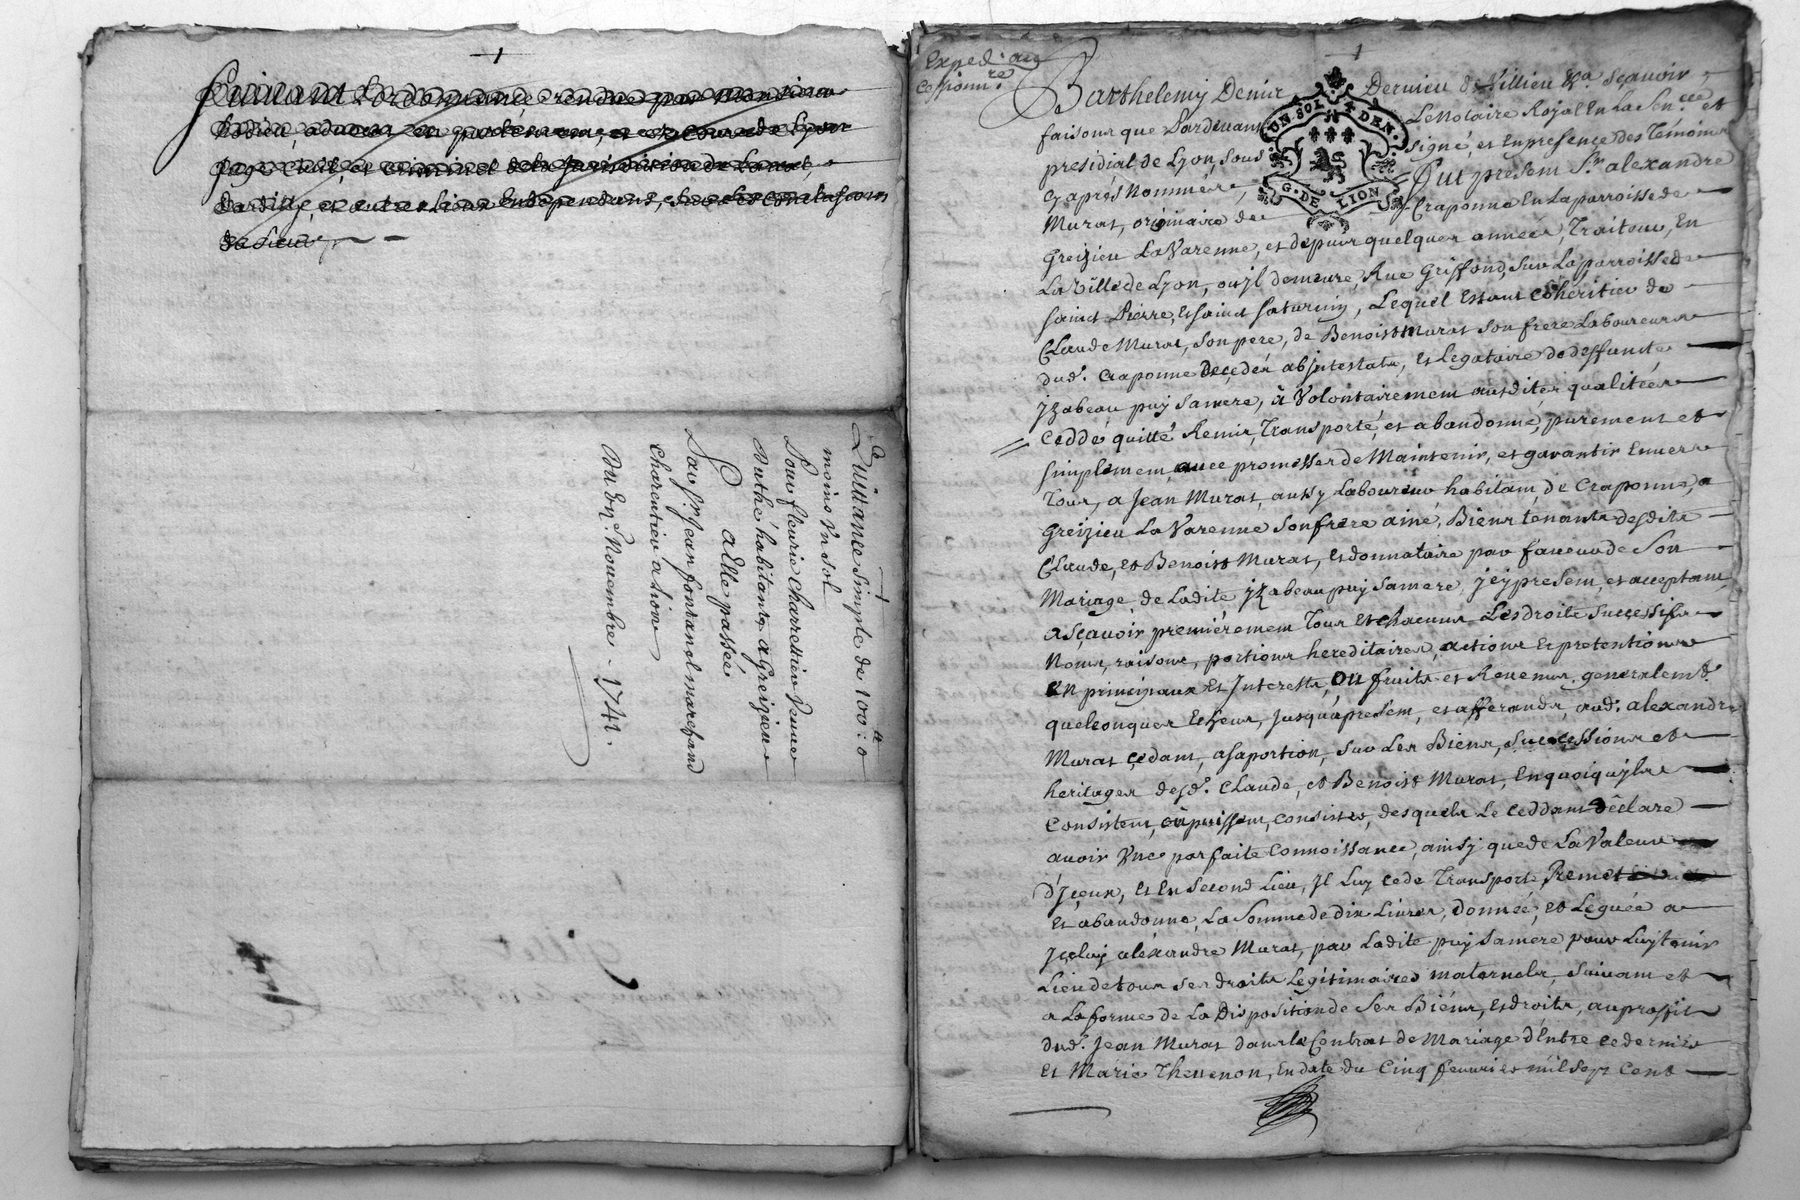 Suivant Lordonnance rendue par Monsieur
Juge Civil, et Criminel de la Jurisdiction de
de Lieu
Quittance simple de 100:ll 0
moins Vn sol
Pour fleurie Charrettier Veuve
habitante a Greizieu
Passée
Par Sr. Jean fontanel marchand
Charentieu a Lion
Du En. Novembre - 1741.
Exped. au
cessionnre.
Barthelemy Denis Dervieu de Villieu &a. sçavoir
faisons que Pardevant Le Notaire Royal En La Sen.cée et
presidial de Lyon, sous signé, et En presence des Témoins
Cy après Nommés, Fut present Sr. alexandre
Murat, originaire de Craponne En La parroisse de
Greizieu La Varenne, et depuis quelques années, Traiteur, En
La Ville de Lyon, ou jl demeure, Rue Griffond, sur La parroisse de
saint Pierre, & saint saturnin, Lequel Estant Coheritier de
Claude Murat, son pere, de Benoist Murat son frere Laboureur
dud. Craponne Decedés abjntestats, et Legataire de deffuncte
Jzabeau puy sa mere, à Volontairement ausdites qualitées
Ceddé quitté Remis, Transporté, et abandonné, purement et
simplement, avec promesses de Maintenir, et garantir Envers
Tous, a Jean Murat, aussy Laboureur habitant, de Craponne, a
Greizieu La Varenne son frere ainé, Biens tenants desdits
Claude, et Benoist Murat, et donnataire par faveur de son
Mariage, de Ladite Jzabeau puy sa mere, jcy present, et acceptant,
a sçavoir premierement Tous et chacuns Les droits successifs
Noms, raisons, portions hereditaires, actions et pretentions
en principaux et Interests, ou fruits et Revenus, generalemt.
quelconques Echeus, jusqu'a present, et afferands, aud. alexandre
Murat cedant, a sa portion, sur Les Biens, successions et
heritages desd. Claude, et Benoist Murat, En quoi qu'jls
Consistent, ou puissent, consister, desquels Le Ceddant déclare
avoir Vne parfaite Connoissance, ainsy que de La Valeur
d'Jceux, et En second Lieu, jl Luy cede Transporte, Remet
et abandonne, La somme de dix Livres, donnée, et Leguée a
Jceluy aléxandre Murat, par Ladite puy sa mere pour Luy tenir
Lieu de tous ses droits Legitimaires maternels, suivant et
a La forme de La Disposition de ses Biens, et droits, au proffit
dud. Jean Murat dans le Contrat de Mariage d'Entre ce dernier
et Marie Thevenon, En date du Cinq fevrier mil sept Cent
UN. SOL. & DEN.
G. DE LION